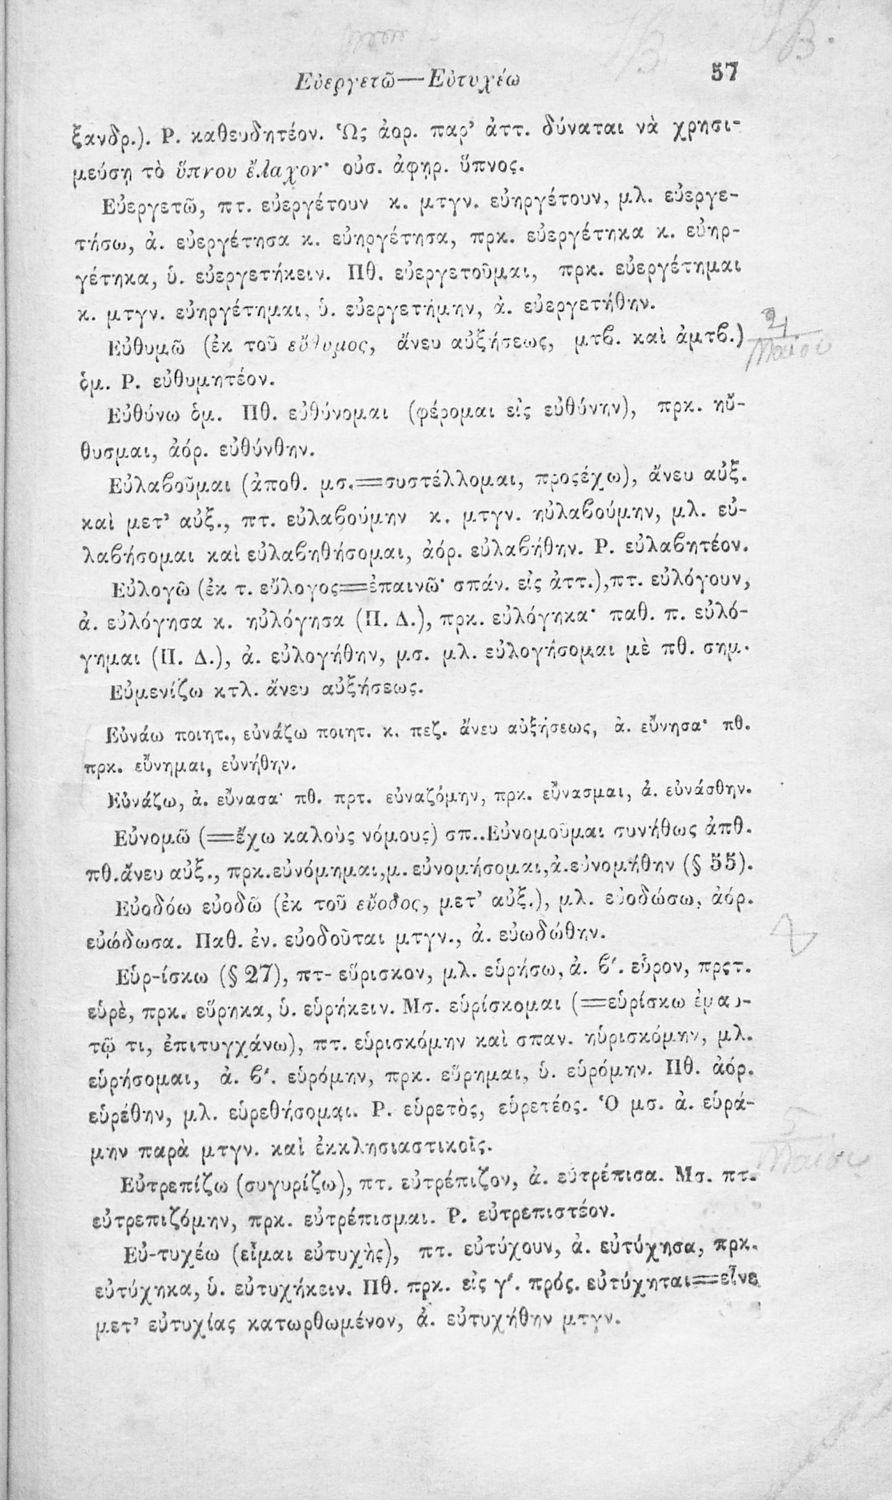 Εὐεργετῶ—Εὐτυχέω 57
ξανδρ.). Ρ. καθευδητέον. Ὡς ἀορ. παρ’ ἀττ. δύναται νὰ χρησι-
μεύσῃ τὸ ὕπνου ἔλαχον· οὐσ. ἀφηρ. ὕπνος.
Εὐεργετῶ, πτ. εὐεργέτουν κ. μτγν. εὐηργέτουν, μλ. εὐεργε-
τήσω, ἀ. εὐεργέτησα κ. εὐηργέτησα, πρκ. εὐεργέτηκα κ. εὐηρ-
γέτηκα, ὑ. εὐεργετήκειν. Πθ. εὐεργετοῦμαι, πρκ. εὐεργέτημαι
κ. μτγν. εὐηργέτημαι, ὑ. εὐεργετήμην, ἀ. εὐεργετήθην.
Εὐθυμῶ (ἐκ τοῦ εὔθυμος, ἄνευ αὐξήσεως, μτϐ. καὶ ἀμτϐ.)
ὁμ. Ρ. εὐθυμητέον.
21
Μαΐου
Εὐθύνω ὁμ. Πθ. εὐθύνομαι (φέρομαι εἰς εὐθύνην), πρκ. ηὔ-
θυσμαι, ἀόρ. εὐθύνθην.
Εὐλαϐοῦμαι (ἀποθ. μσ.=συστέλλομαι, προςέχω), ἄνευ αὐξ.
καὶ μετ’ αὐξ., πτ. εὐλαϐούμην κ. μτγν. ηὐλαϐούμην, μλ. εὐ-
λαϐήσομαι καὶ εὐλαϐηθήσομαι, ἀόρ. εὐλαϐήθην. Ρ. εὐλαϐητέον.
Εὐλογῶ (ἐκ τ. εὔλογος=ἐπαινῶ· σπάν. εἰς ἀττ.),πτ. εὐλόγουν,
ἀ. εὐλόγησα κ. ηὐλόγησα (Π. Δ.), πρκ. εὐλόγηκα· παθ. π. εὐλό-
γημαι (Π. Δ.), ἀ. εὐλογήθην, μσ. μλ. εὐλογήσομαι μὲ πθ. σημ.
Εὐμενίζω κτλ. ἄνευ αὐξήσεως.
Εὐνάω ποιητ., εὐνάζω ποιητ. κ. πεζ. ἄνευ αὐξήσεως, ἀ. εὔνησα· πθ.
πρκ. εὔνημαι, εὐνήθην.
Εὐνάζω, ἀ. εὔνασα· πθ. πρτ. εὐναζόμην, πρκ. εὔνασμαι, ἀ. εὐνάσθην.
Εὐνομῶ (=ἔχω καλοὺς νόμους) σπ..Εὐνομοῦμαι συνήθως ἀπθ.
πθ.ἄνευ αὐξ., πρκ.εὐνόμημαι,μ.εὐνομήσομαι,ἀ.εὐνομήθην (§ 55).
Εὐοδόω εὐοδῶ (ἐκ τοῦ εὔοδος, μετ’ αὐξ.), μλ. εὐοδώσω, ἀόρ.
εὐώδωσα. Παθ. ἐν. εὐοδοῦται μτγν., ἀ. εὐωδώθην.
Εὑρ-ίσκω (§ 27), πτ- εὕρισκον, μλ. εὑρήσω, ἀ. ϐ′. εὗρον, πρςτ.
εὑρὲ, πρκ. εὕρηκα, ὑ. εὑρήκειν. Μσ. εὑρίσκομαι (=εὑρίσκω ἐμαυ-
τῷ τι, ἐπιτυγχάνω), πτ. εὑρισκόμην καὶ σπαν. ηὑρισκόμην, μλ.
εὑρήσομαι, ἀ. ϐ′. εὑρόμην, πρκ. εὕρημαι, ὑ. εὑρόμην. Πθ. ἀόρ.
εὑρέθην, μλ. εὑρεθήσομαι. Ρ. εὑρετὸς, εὑρετέος. Ὁ μσ. ἀ. εὑρά-
μην παρὰ μτγν. καὶ ἐκκλησιαστικοῖς.
5
Μαΐου
Εὐτρεπίζω (συγυρίζω), πτ. εὐτρέπιζον, ἀ. εὐτρέπισα. Μσ. πτ.
εὐτρεπιζόμην, πρκ. εὐτρέπισμαι. Ρ. εὐτρεπιστέον.
Εὐ-τυχέω (εἶμαι εὐτυχὴς), πτ. εὐτύχουν, ἀ. εὐτύχησα, πρκ.
εὐτύχηκα, ὑ. εὐτυχήκειν. Πθ. πρκ. εἰς γ′. πρός. εὐτύχηται=εἶνε
μετ’ εὐτυχίας κατωρθωμένον, ἀ. εὐτυχήθην μτγν.